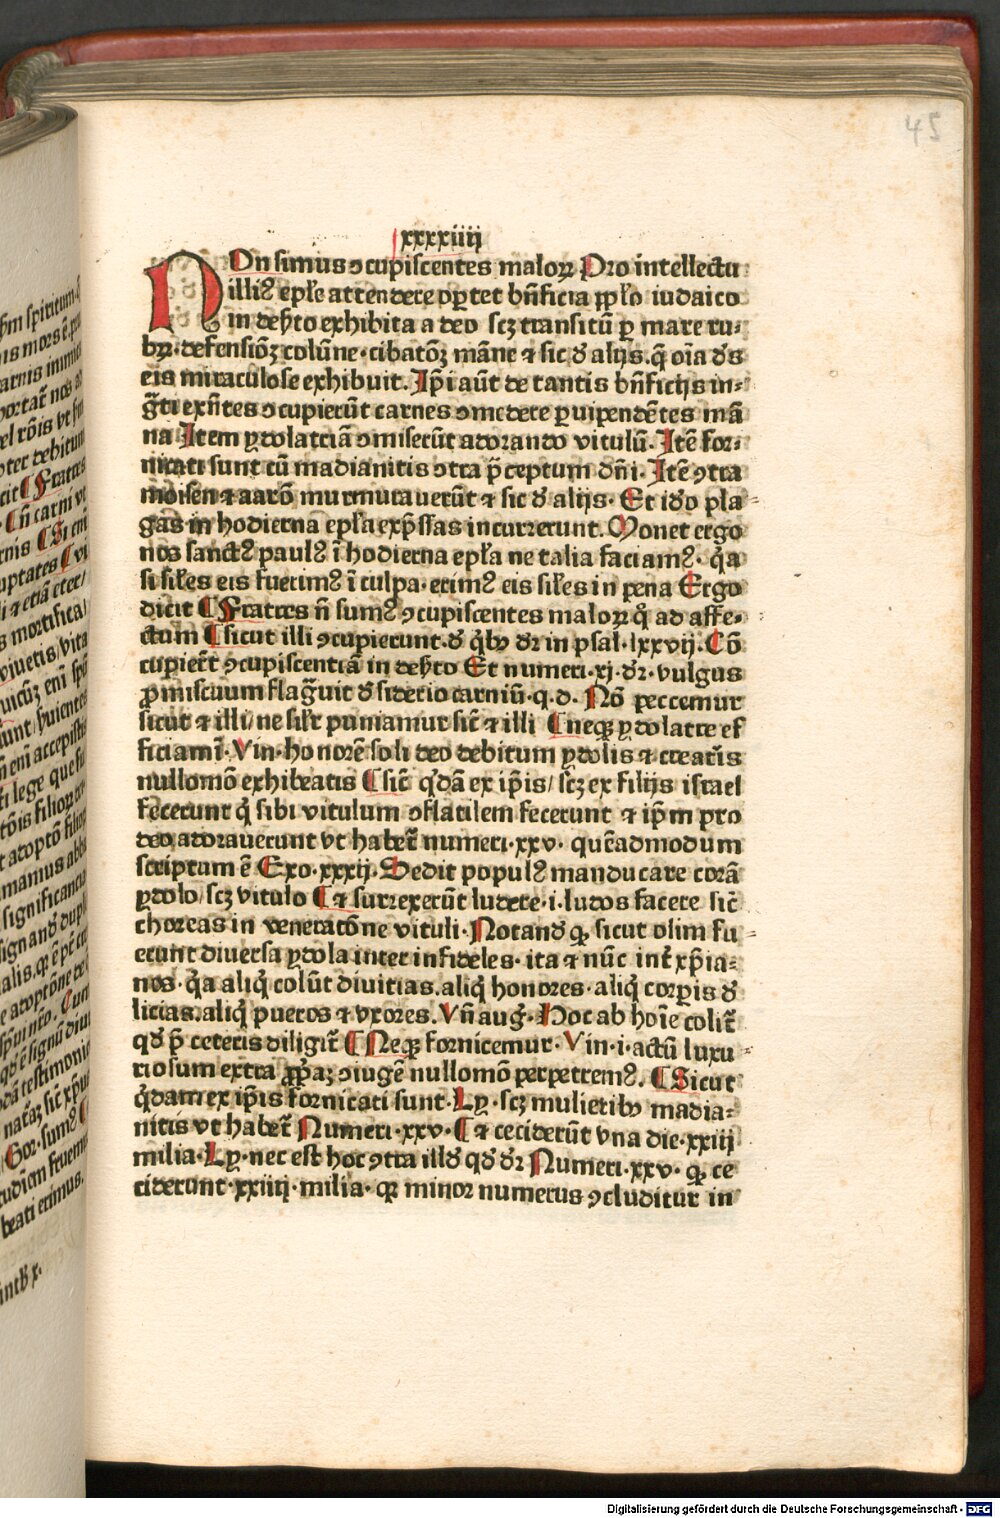 45
xxxxiiij
NOn simus ɔcupiscentes maloꝝ Pro intellectu
illiꝰ eple attendere oportet bn̄ficia pplo iudaico
in deẜto exhibita a deo scꝫ transitū ꝑ mare ru⸗
bꝝ·defensiōꝫ colūne·cibatōꝫ māne ⁊ sic ď alijs.q̄ oīa ďs
eis miraculose exhibuit. Ip̄i aūt de tantis bn̄ficijs in⸗
g̃ti exn̄tes ɔcupierūt carnes ɔmedere ꝑuipendētes mā
na Item ydolatriā ɔmiserūt adorando vitulū. Itē for⸗
nicati sunt cū madianitis ɔtra p̄ceptum dn̄i. Itē ɔtra
moisen ⁊ aarō murmurauerūt ⁊ sic ď alijs. Et iďo pla⸗
gas in hodierna epła exp̄ssas incurrerunt. Monet ergo
nos sanctꝰ paulꝰ ī hodierna epła ne talia faciamꝰ. q̓a
si siłes eis fuerimꝰ ī culpa·erimꝰ eis siłes in pena Ergo
dicit ¶ Fratres n̄ sumꝰ ɔcupiscentes maloꝝ q̓ ad affe⸗
ctum ¶ sicut illi ɔcupierunt.ď q̓bꝰ dr̄ in psal·lxxvij. ¶ Cō
cupier̄t ɔcupiscentiā in deẜto Et numeri·xj·dr̄· vulgus
ꝓmiscuum flag̃uit ďsiderio carniū·q·d. Nō peccemur
sicut ⁊ illi/ ne siłr puniamur sic̄ ⁊ illi ¶ neqꝫ ydolatre ef
ficiamī· Vin·honorē soli deo debitum ydolis ⁊ creatīs
nullomō exhibeatis ¶ sic̄ q̓dā ex ip̄is/ scꝫ ex filijs israel
fecerunt q̓ sibi vitulum ɔflatilem fecerunt ⁊ ip̄m pro
deo adorauerunt vt haber̄ numeri·xxv· quēadmodum
scriptum ē Exo·xxxij·Sedit populꝰ manducare corā
ydolo/ scꝫ vitulo ¶ ⁊ surrexerūt ludere·i·ludos facere sic̄
choreas in veneratōne vituli·Notanď qꝫ sicut olim fu⸗
erunt diuersa ydola inter infideles· ita ⁊ nūc int̄ xp̄ia⸗
nos·q̓a aliq̓ colūt diuitias.aliq̓ honores·aliq̓ corꝑis ď
licias.aliq̓ pueros ⁊ vxores. Vn̄ aug̓·Hoc ab hoīe colit̄
qď p̄ ceteris diligit̄ ¶ Neqꝫ fornicemur· Vin·i·actū luxu⸗
riosum extra ꝓp̄aꝫ ɔiugē nullomō perpetremꝰ. ¶ Sicut
q̓dam ex ip̄is fornicati sunt·Ly·scꝫ mulieribꝰ madia⸗
nitis vt haber̄ Numeri·xxv·¶ ⁊ ceciderūt vna die·xxiij
milia·Ly·nec est hoc ɔtra illď qď dr̄ Numeri·xxv·qꝫ ce
ciderunt·xxiiij·milia·qꝛ minor numerus ɔcluditur in
Digitalisierung gefördert durch die Deutsche Forschungsgemeinschaft - DFG